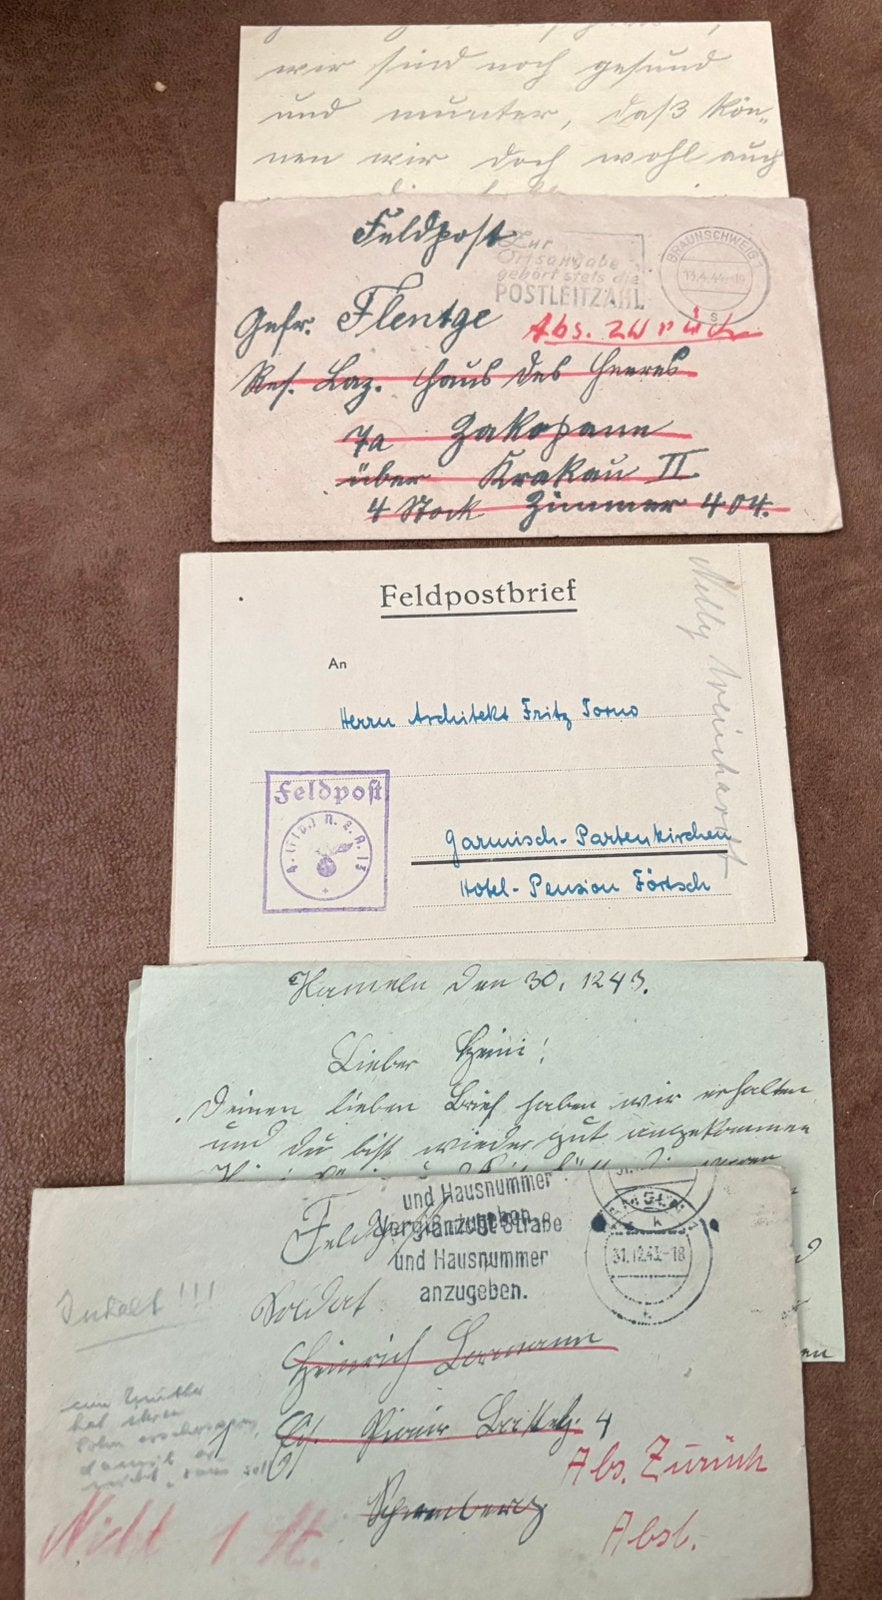 wir sind noch gesund
und munter, daß kön„
nen wir doch wohl auch
Feldpost
Zur
Ortsangabe
gehört stets die
POSTLEITZAHL
BRAUNSCHWEIG 1
13.4.44.-19
s
Gefr. Flentge
Abs. zurück
Res. Laz. Haus des Heeres
7a Zakopane
über Krakau II
4 Stock Zimmer 404.
Feldpostbrief
Nelly
An
Herrn Architekt Fritz Torno
Feldpost
Garmisch-Partenkirchen
Hotel-Pension Förtsch
Hameln den 30. 12 43.
Lieber Heini!
Deinen lieben Brief haben wir erhalten
und du bist wieder gut angekommen
und Hausnummer
anzugeben.
Straße
und Hausnummer
anzugeben.
31.12.43.-18
Feldpost
Inhalt!!!
Soldat
Heinrich
eine Mutter
hat ihren
Sohn
damit er
nicht
Pionier 4
Abs. Zurück
Abst.